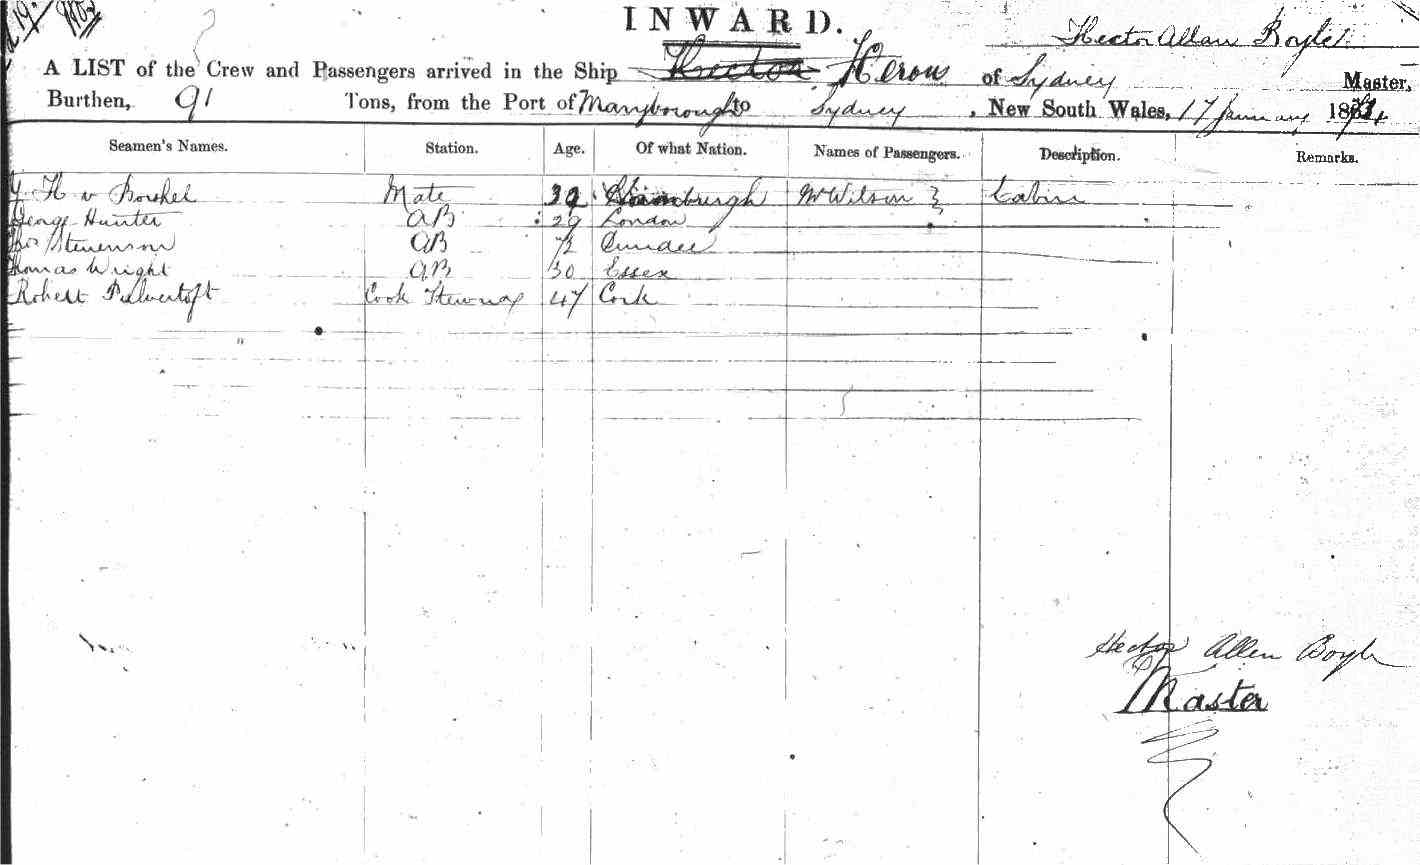 INWARD.
Hector Allan Boyle
A LIST of the Crew and Passengers arrived in the Ship Hector Heron of Sydney Master,
Burthen, 91 Tons, from the Port of Maryborough to Sydney, New South Wales, 17 January 187
Seamen's Names. Station. Age. Of what Nation. Names of Passengers. Description. Remarks.
Mate 32 Mr Wilson } Cabin
George Hunter AB 29 London
Stevenson AB Dundee
Thomas Wright AB 30 Essex
Robert Pulvertoft Cook Steward 47 Cork
Hector Allen Boyle
Master